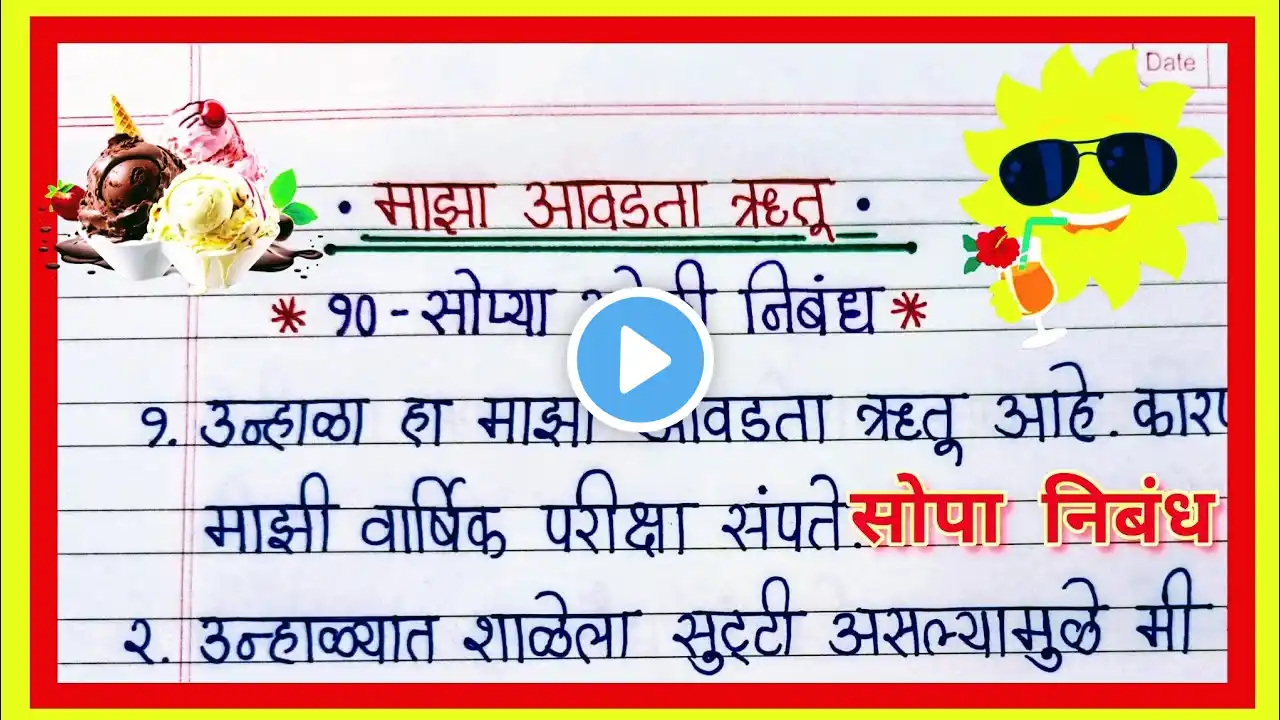 Date
माझा आवडता ऋतू
* १० - सोप्या निबंध *
१. उन्हाळा हा माझा आवडता ऋतू आहे. कारण
माझी वार्षिक परीक्षा संपते.
सोपा निबंध
२. उन्हाळ्यात शाळेला सुट्टी असल्यामुळे मी